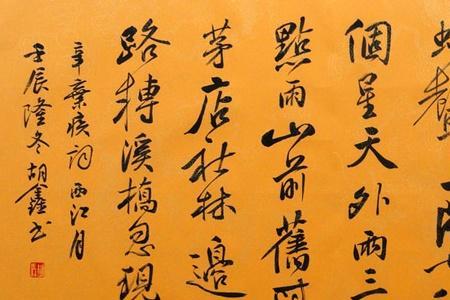 聲一
個星天外兩三
點雨山前舊時
茅店社林邊
路轉溪橋忽現
辛棄疾詞西江月
壬辰隆冬胡鑫书